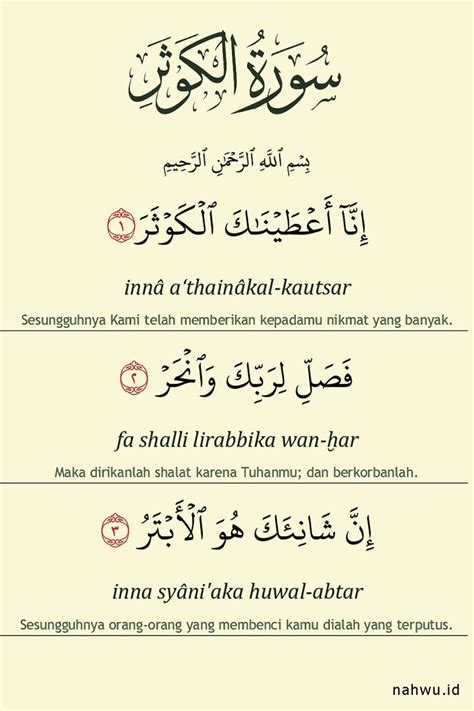 سُورَةُ الكَوثَرِ
بِسْمِ ٱللَّهِ ٱلرَّحْمَٰنِ ٱلرَّحِيمِ
إِنَّآ أَعْطَيْنَٰكَ ٱلْكَوْثَرَ ١
innâ a‘thainâkal-kautsar
Sesungguhnya Kami telah memberikan kepadamu nikmat yang banyak.
فَصَلِّ لِرَبِّكَ وَٱنْحَرْ ٢
fa shalli lirabbika wan-ḫar
Maka dirikanlah shalat karena Tuhanmu; dan berkorbanlah.
إِنَّ شَانِئَكَ هُوَ ٱلْأَبْتَرُ ٣
inna syâni'aka huwal-abtar
Sesungguhnya orang-orang yang membenci kamu dialah yang terputus.
nahwu.id